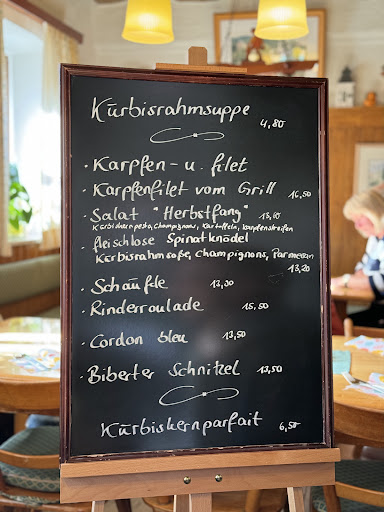 Kürbisrahmsuppe 4,80
· Karpfen- u. filet
· Karpfenfilet vom Grill 16,50
· Salat "Herbstfang" 13,10
Kürbiskernpesto, Champignons, Kartoffeln, Karpfenstreifen
· fleischlose Spinatknödel
Kürbisrahmsoße, Champignons, Parmesan
13,20
· Schäufele 12,30
· Rinderroulade 15,50
· Cordon bleu 13,50
· Biberter Schnitzel 13,50
Kürbiskernparfait 6,50